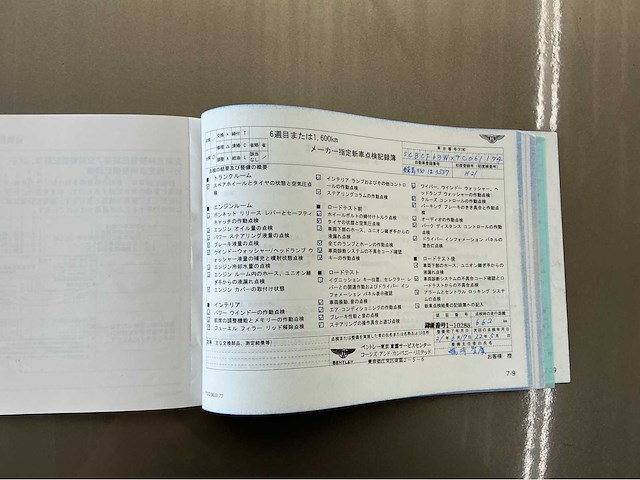 6週目または1,600km
メーカー指定新車点検記録簿
点検の結果及び整備の概要
■ トランクルーム
スペアホイールとタイヤの状態と空気圧点検
■ エンジンルーム
ボンネット リリース レバーとセーフティキャッチの作動点検
エンジン オイル量の点検
パワー ステアリング液量の点検
ブレーキ液量の点検
ウインドーウォッシャー/ヘッドランプ ウォッシャー液量の補充と噴射状態点検
エンジン冷却水量の点検
エンジン ルーム内のホース、ユニオン継ぎ手からの液漏れ点検
エンジン カバーの取付け状態
■ インテリア
パワー ウインドーの作動点検
前席の調整機能とメモリーの作動点検
フューエル フィラー リッド解除点検
インテリア ランプおよびその他コントロールの作動点検
ステアリングコラムの作動点検
■ ロードテスト前
ホイールボルトの締付けトルク点検
タイヤの状態と空気圧点検
車両下部のホース、ユニオン継ぎ手からの液漏れ点検
全てのランプとホーンの作動点検
車両診断システムの不具合コード確認
キーの作動点検
■ ロードテスト
イグニッション キー位置、セレクター レバーとの関連作動およびドライバー インフォメーション パネル表示確認
車両振動、音の点検
エア コンディショニングの作動点検
ブレーキ性能と音の点検
ステアリングの操作具合と遊び点検
ワイパー、ウインドー ウォッシャー、ヘッドランプ ウォッシャーの作動点検
クルーズ コントロールの作動点検
パーキング ブレーキのきき具合と作動点検
オーディオの作動点検
パーク ディスタンス コントロールの作動点検
ドライバー インフォメーション パネルの警告灯点検
■ ロードテスト後
車両下部のホース、ユニオン継ぎ手からの液漏れ点検
車両診断システムの不具合コード確認とロードテストからの不具合点検
アラームとセントラル ロッキング システムの点検
新車点検結果の記録簿への記入
点検または整備を実施した者の氏名または名称および住所
BENTLEY
ベントレー東京 東雲サービスセンター
コーンズ・アンド・カンパニー・リミテッド
東京都江東区東雲2-5-6
1-10288
お客様 控
7-9